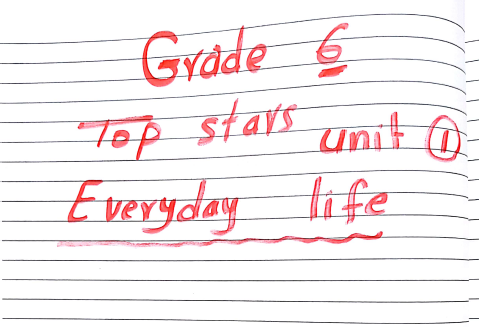 Grade 6
Top stars unit 1
Everyday life